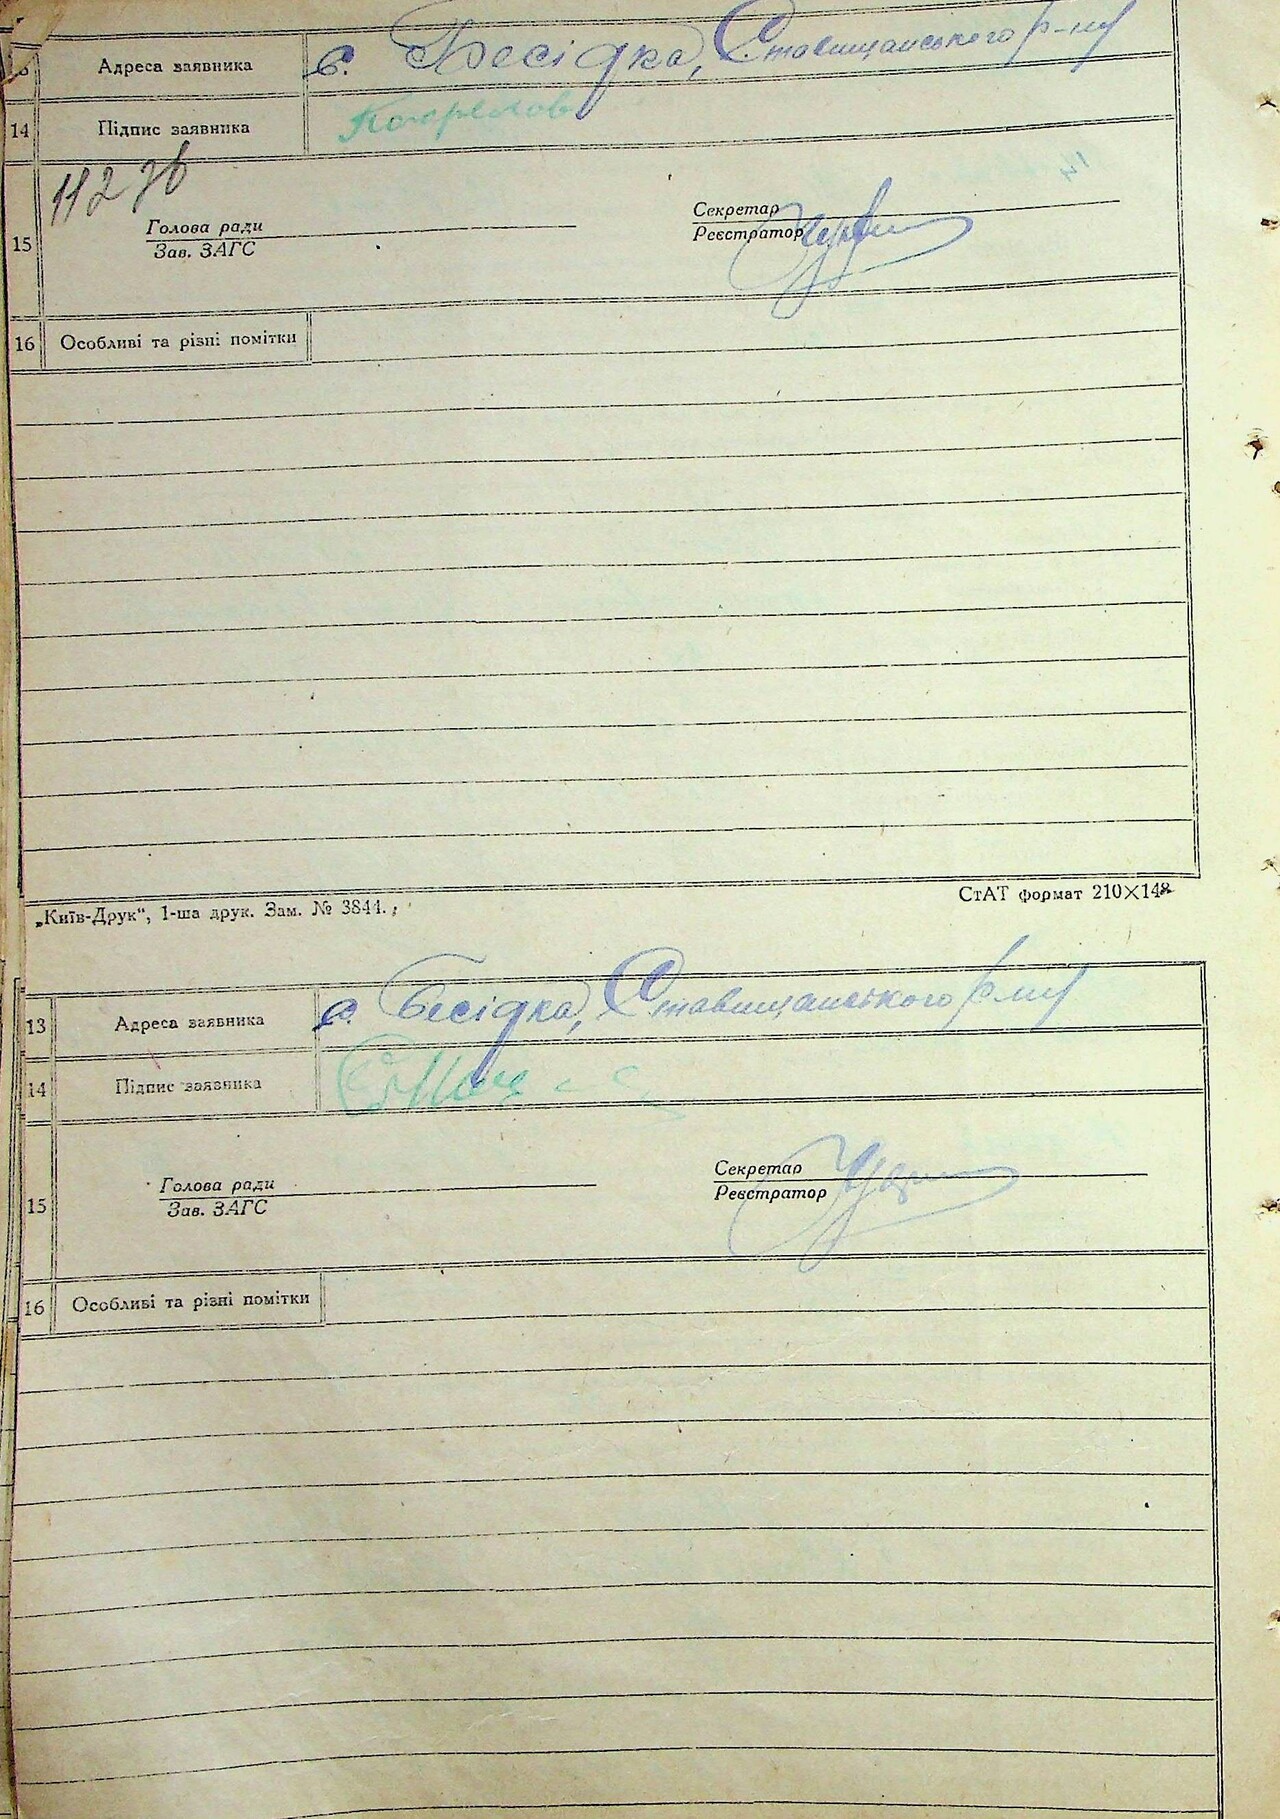 13 Адреса заявника с. Бесідка, Ставищанського р-ну
14 Підпис заявника
112 зв
15 Голова ради Секретар
Зав. ЗАГС Реєстратор
16 Особливі та різні помітки
„Київ-Друк“, 1-ша друк. Зам. № 3844. СтАТ формат 210×148
13 Адреса заявника с. Бесідка, Ставищанського р-ну
14 Підпис заявника
15 Голова ради Секретар
Зав. ЗАГС Реєстратор
16 Особливі та різні помітки